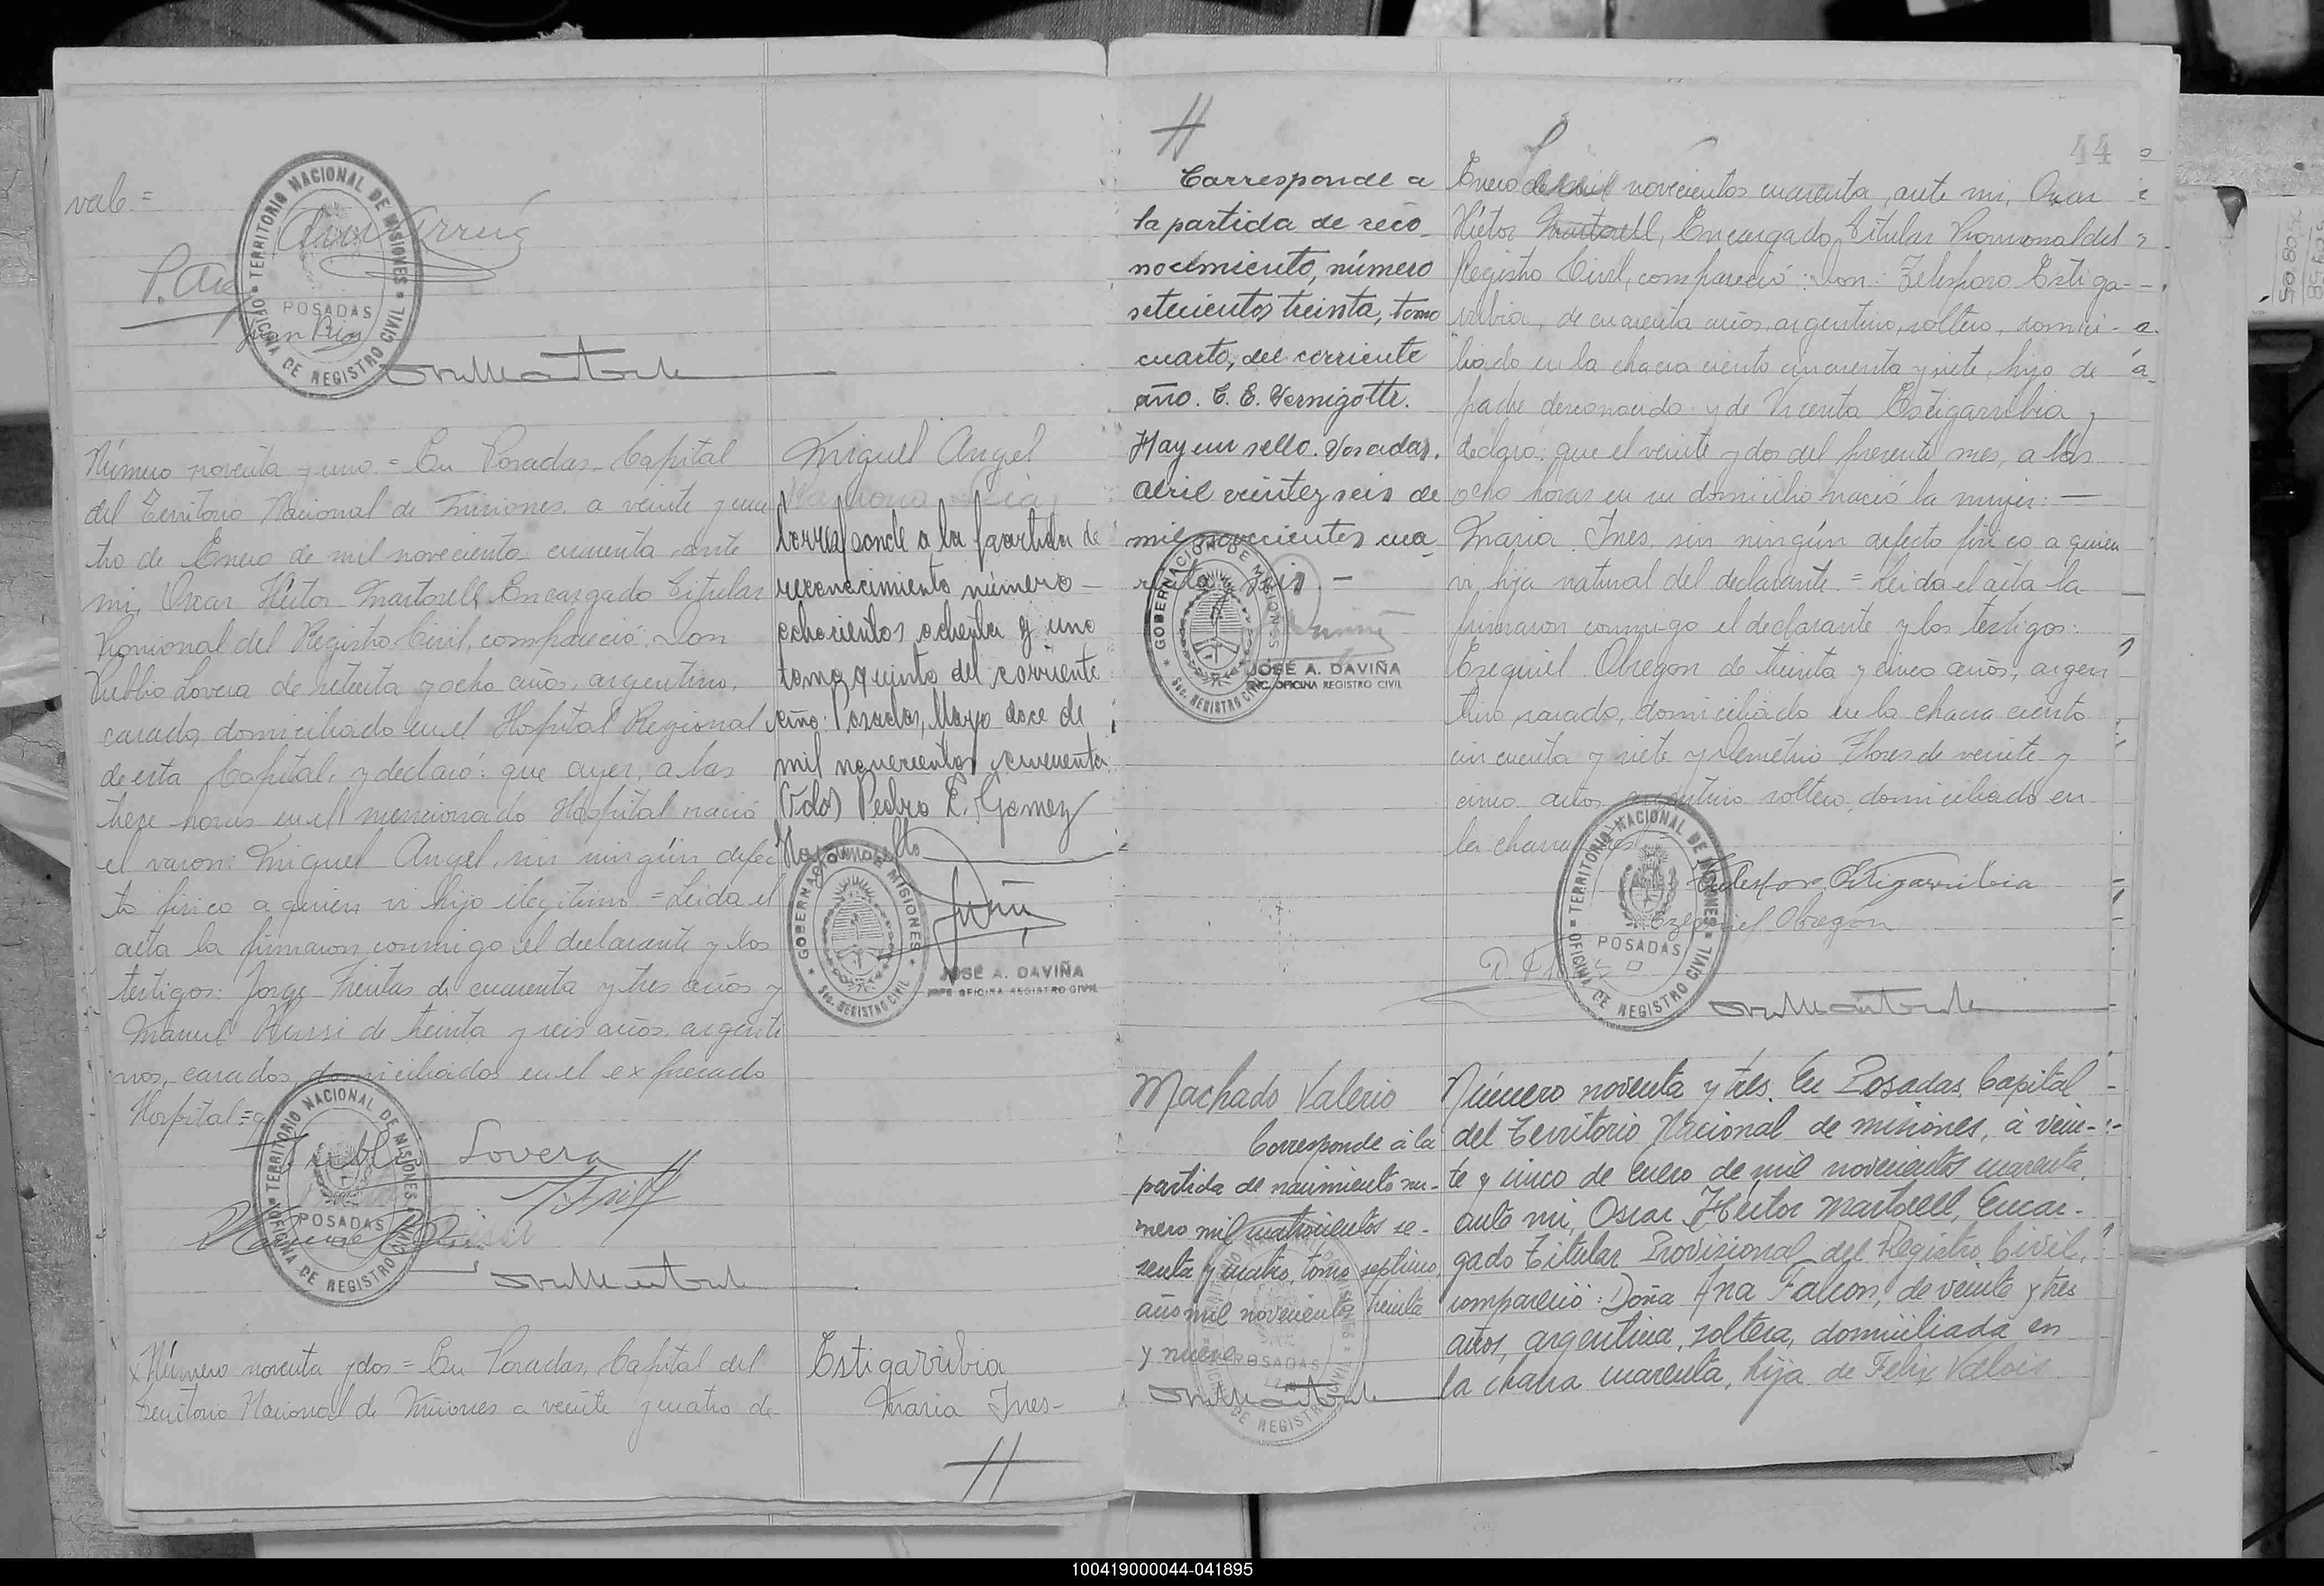 vale =
TERRITORIO NACIONAL DE MISIONES
OFICINA DE REGISTRO CIVIL
POSADAS
Juan Ríos
Número noventa y uno = En Posadas Capital
del Territorio Nacional de Misiones a veinte y cua
tro de Enero de mil novecientos cuarenta, ante
mi, Oscar Héctor Martorell Encargado Titular
Provisional del Registro Civil, compareció: Don
Publio Lovera de setenta y ocho años, argentino,
casado, domiciliado en el Hospital Regional
de esta Capital, y declaró: que ayer, a las
trece horas en el mencionado Hospital nació
el varon: Miguel Angel, sin ningún defec
to fisico a quien vi hijo ilegitimo = Leida el
acta la firmaron conmigo el declarante y los
testigos: Jorge Freitas de cuarenta y tres años y
Manuel Russi de treinta y seis años, argenti
nos, casados, domiciliados en el expresado
Hospital =
TERRITORIO NACIONAL DE MISIONES
OFICINA DE REGISTRO CIVIL
POSADAS
Publio Lovera
x Número noventa y dos = En Posadas, Capital del
Territorio Nacional de Misiones a veinte y cuatro de
Miguel Angel
Corresponde a la partida de
reconocimiento número
ochocientos ochenta y uno
tomo quinto del corriente
año: Posadas, Mayo doce de
mil novecientos cincuenta
(Fdo) Pedro E. Gomez
Hay un sello
GOBERNACION DE MISIONES
Sec. REGISTRO CIVIL
JOSÉ A. DAVIÑA
JEFE OFICINA REGISTRO CIVIL
Estigarribia
Maria Ines-
44
Corresponde a
la partida de reco-
nocimiento, número
setecientos treinta, tomo
cuarto, del corriente
año. C. E. Vernigotte.
Hay un sello. Posadas.
Abril veinte y seis de
mil novecientos cua
renta y seis. -
GOBERNACION DE MISIONES
Sec. REGISTRO CIVIL
JOSÉ A. DAVIÑA
ENC. OFICINA REGISTRO CIVIL
Enero de mil novecientos cuarenta, ante mi, Oscar
Héctor Martorell, Encargado Titular Provisional del
Registro Civil, compareció: Don: Telesforo Estiga-
rribia, de cuarenta años, argentino, soltero, domici-
liado en la chacra ciento cincuenta y siete, hijo de
padre desconocido y de Vicenta Estigarribia y
declaró: que el veinte y dos del presente mes, a las
ocho horas en su domicilio nació la mujer: —
Maria Ines, sin ningún defecto fisico a quien
vi hija natural del declarante = Leida el acta la
firmaron conmigo el declarante y los testigos:
Ezequiel Obregon de treinta y cinco años, argen
tino, casado, domiciliado en la chacra ciento
cincuenta y siete y Demetrio Flores de veinte y
cinco años argentino soltero, domiciliado en
la chacra
TERRITORIO NACIONAL DE MISIONES
OFICINA DE REGISTRO CIVIL
POSADAS
Telesforo Estigarribia
Ezequiel Obregon
Machado Valerio
Corresponde á la
partida de nacimiento nu-
mero mil cuatrocientos se-
senta y cuatro, tomo septimo,
año mil novecientos treinta
y nueve
POSADAS
Número noventa y trés. En Posadas, Capital
del Territorio Nacional de misiones, á vein-
te y cinco de enero de mil novecientos cuarenta,
ante mi, Oscar Héctor Martorell, Encar-
gado Titular Provisional del Registro Civil,
compareció: Doña Ana Falcon, de veinte y tres
años, argentina, soltera, domiciliada en
la chacra cuarenta, hija de Felix Valois
100419000044-041895